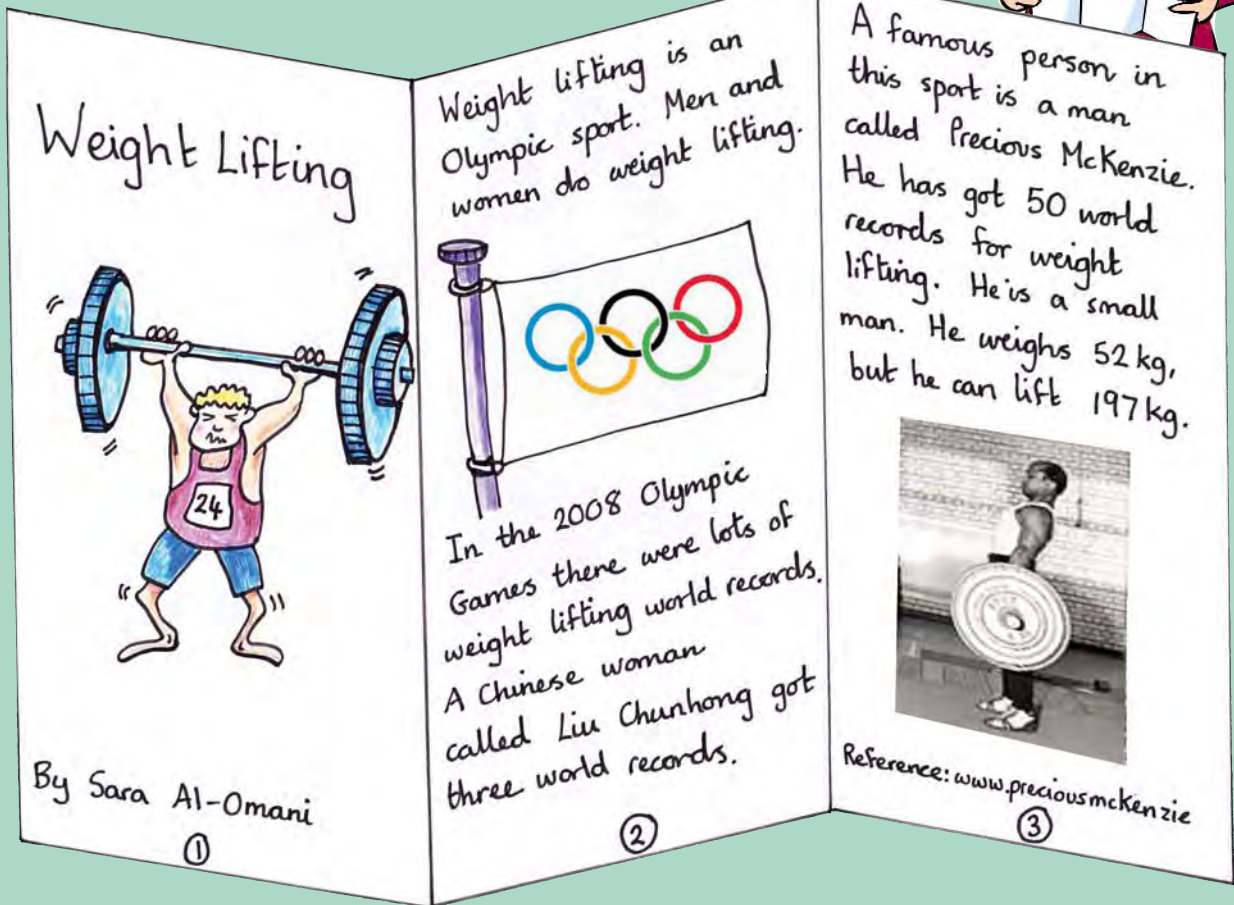 Weight Lifting
24
By Sara Al-Omani
1
Weight lifting is an
Olympic sport. Men and
women do weight lifting.
In the 2008 Olympic
Games there were lots of
weight lifting world records.
A Chinese woman
called Liu Chunhong got
three world records.
2
A famous person in
this sport is a man
called Precious McKenzie.
He has got 50 world
records for weight
lifting. He is a small
man. He weighs 52 kg,
but he can lift 197 kg.
Reference: www.preciousmckenzie
3